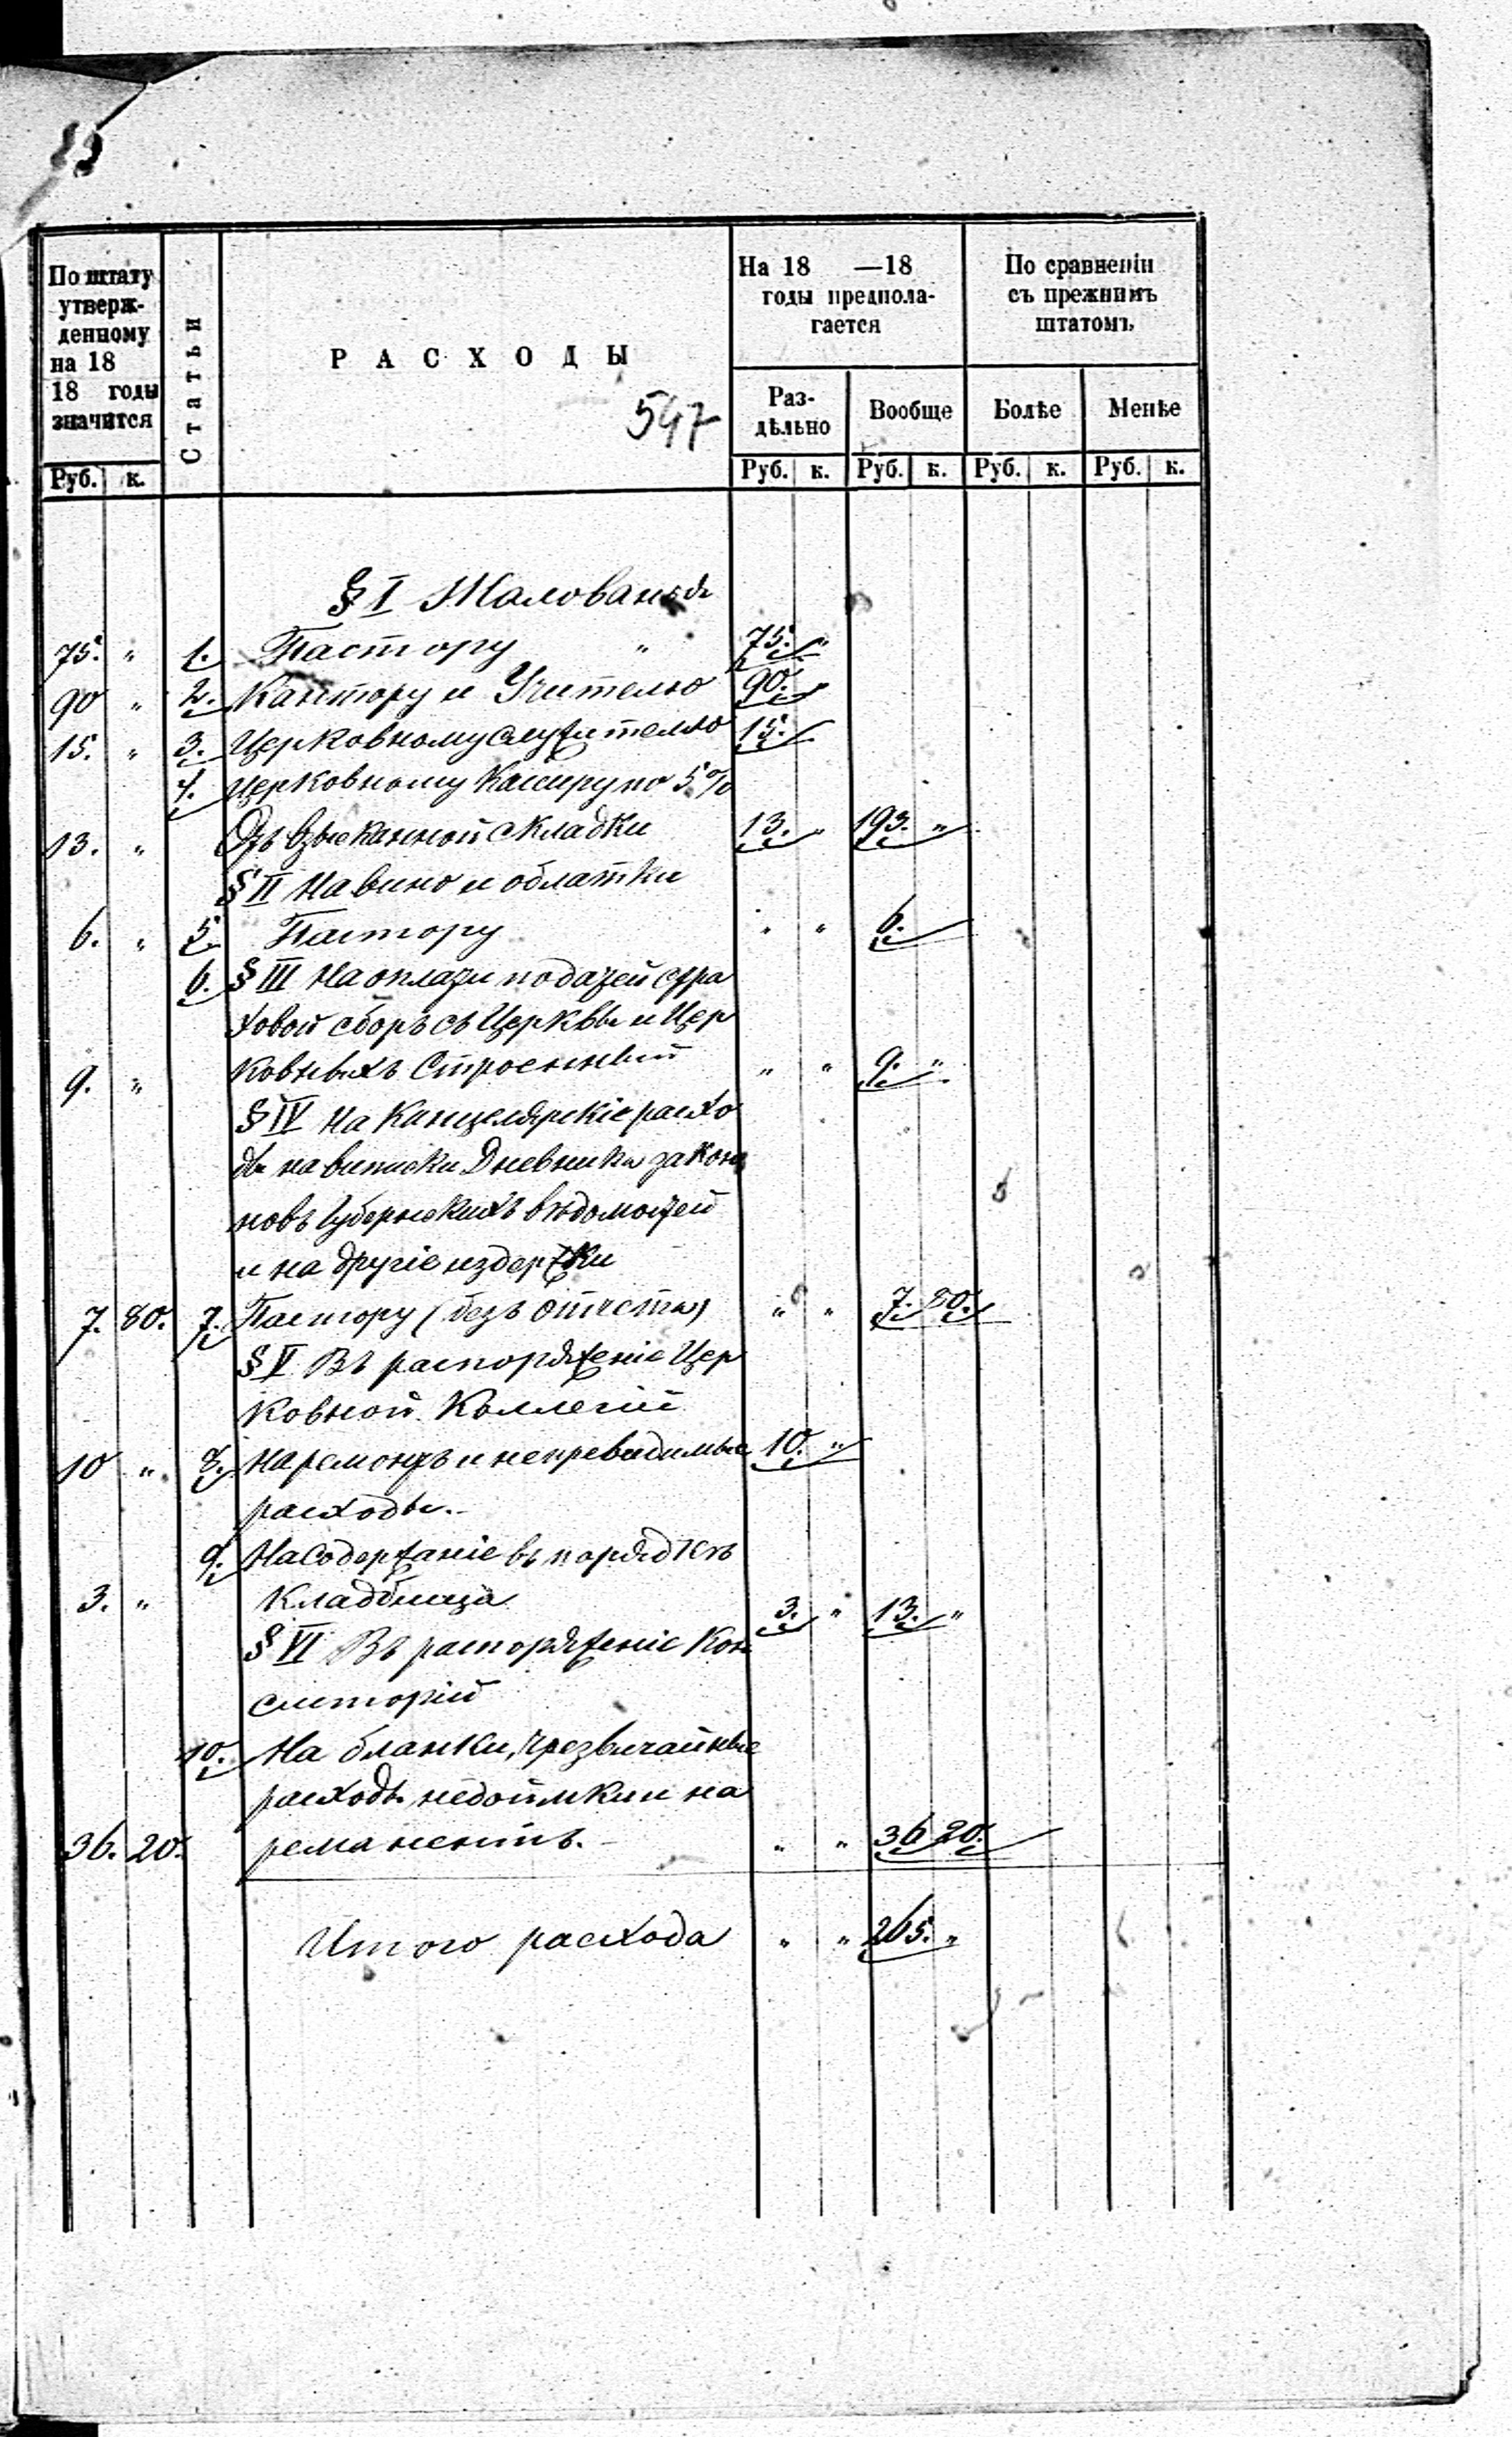 По штату
утверж-
денному
на 18
18 годы
значится
Статьи
РАСХОДЫ
547
На 18 —18
годы предпола-
гается
По сравненiи
съ прежнимъ
штатомъ
Раз-
дѣльно
Вообще
Болѣе
Менѣе
Руб. к.
Руб. к. Руб. к. Руб. к. Руб. к.
§ I Жалованья
75. " 1. Пастору " 75. "
90 " 2. Кантору и Учителю 90. "
15. " 3. Церковному служителю 15.
4. Церковному Касиру по 5%
13. " Изъ взысканной складки 13. " 193. "
§ II На вино и облатки
6. " 5. Пастору " " 6.
6. § III На оплату податей стра
ховой сборъ съ Церквы и Цер
9. " ковныхъ Строенный " " 9. "
§ IV На Канцелярскiе расхо
ды на виписки Дневника закон
новъ Губернскихъ вѣдомостей
и на другiе издержки
7. 80. 7. Пастору (безъ отчета) " " 7. 80.
§ V Въ распоряженiе Цер
ковной Коллегiй
10 " 8. На ремонтъ и непревидимые 10. "
расходы.-
9. На содержанiе въ порядкѣ
3. " кладбища 3. " 13. "
§ VI Въ распоряженiе Кон
систорiй
10. На бланки, чрезвичайные
расходы недоимки и на
36. 20. реманентъ.- " " 36 20.
Итого расхода " " 265. "